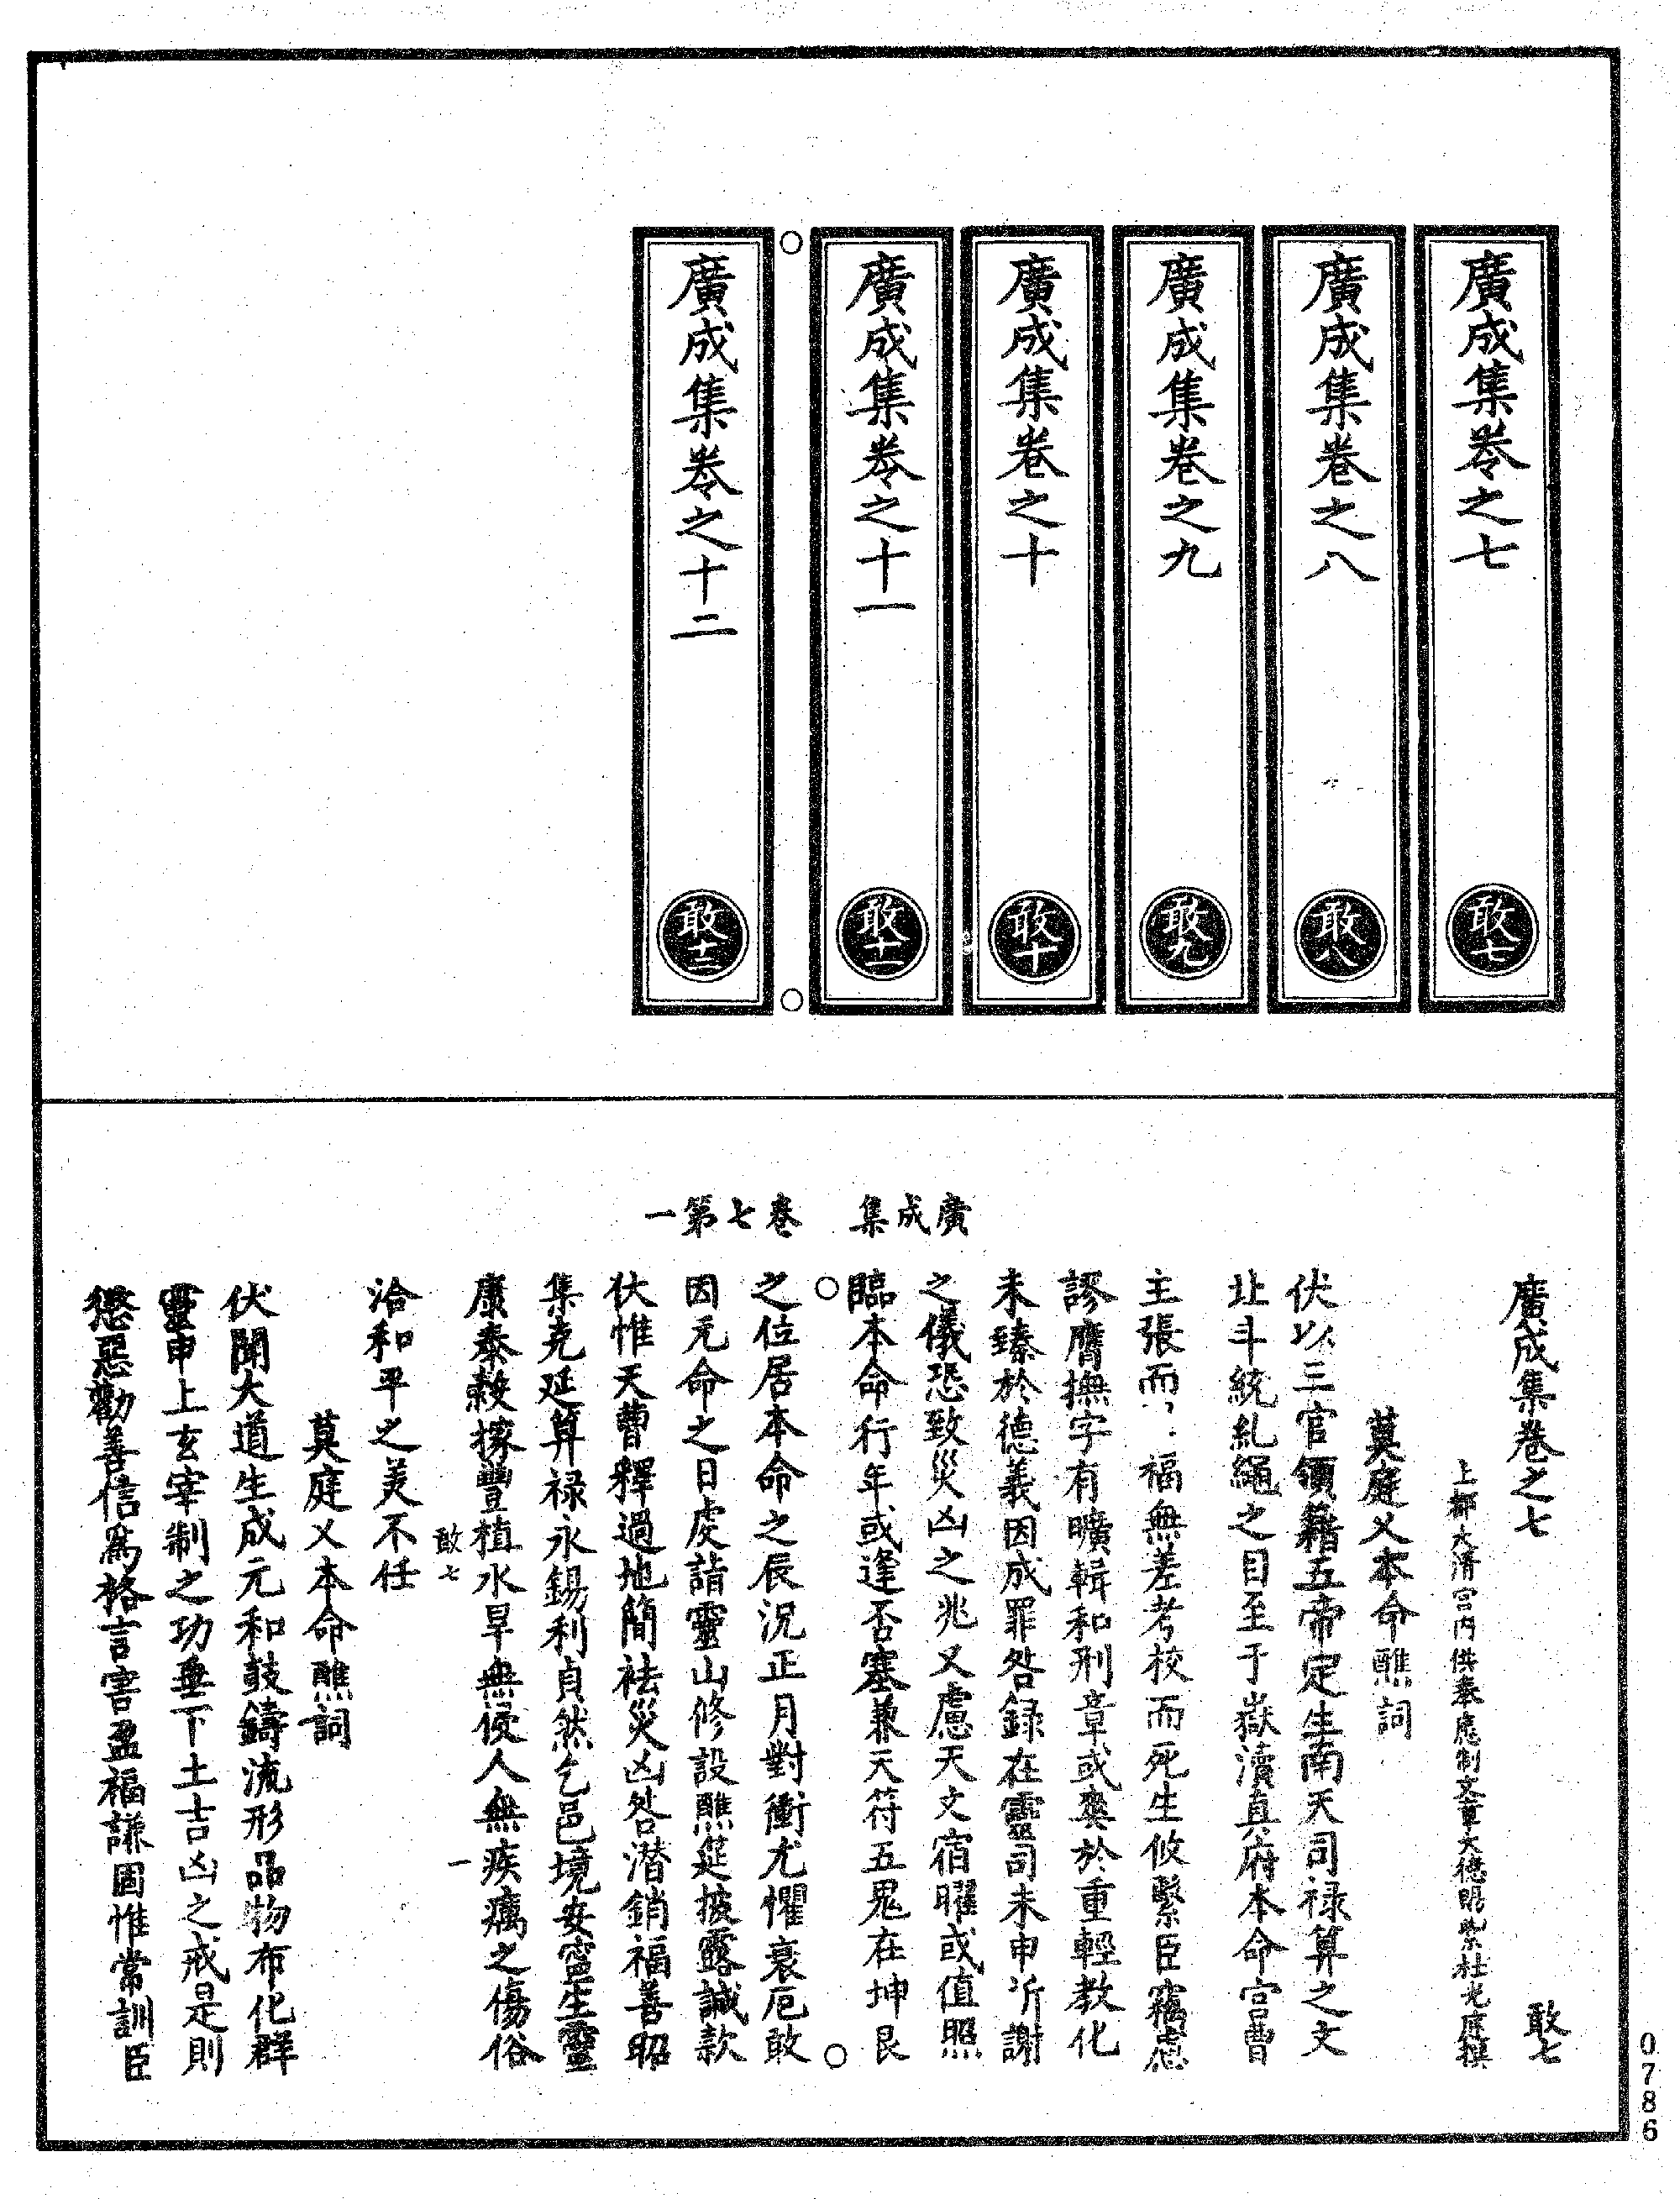 廣成集卷之七
敢七
廣成集卷之八
敢八
廣成集卷之九
敢九
廣成集卷之十
敢十
廣成集卷之十一
敢十一
廣成集卷之十二
敢十二
廣成集 卷七第一
廣成集卷之七 敢七
上都大清宮內供奉應制文章大德賜紫杜光庭撰
莫庭乂本命醮詞
伏以三官領籍五帝定生南天司祿算之文
北斗統糺繩之目至于嶽瀆真府本命宮曹
主張而 福無差考校而死生攸繫臣竊慮
謬膺撫字有曠輯和刑章或爽於重輕教化
未臻於德義因成罪咎録在靈司未申祈謝
之儀恐致災凶之兆又慮天文宿曜或值照
臨本命行年或逢否塞兼天符五鬼在坤艮
之位居本命之辰況正月對衝尤懼衰厄敢
因元命之日虔詣靈山修設醮筵披露誠款
伏惟天曹釋過地簡袪災凶咎潛銷福善昭
集克延算祿永錫利貞然乞邑境安寧生靈
康泰穀掾豐植水旱無侵人無疾癘之傷俗
敢七 一
洽和平之美不任
莫庭乂本命醮詞
伏聞大道生成元和鼓鑄流形品物布化群
靈申上玄宰制之功垂下土吉凶之戒是則
懲惡勸善信爲格言害盈福謙固惟常訓臣
0786